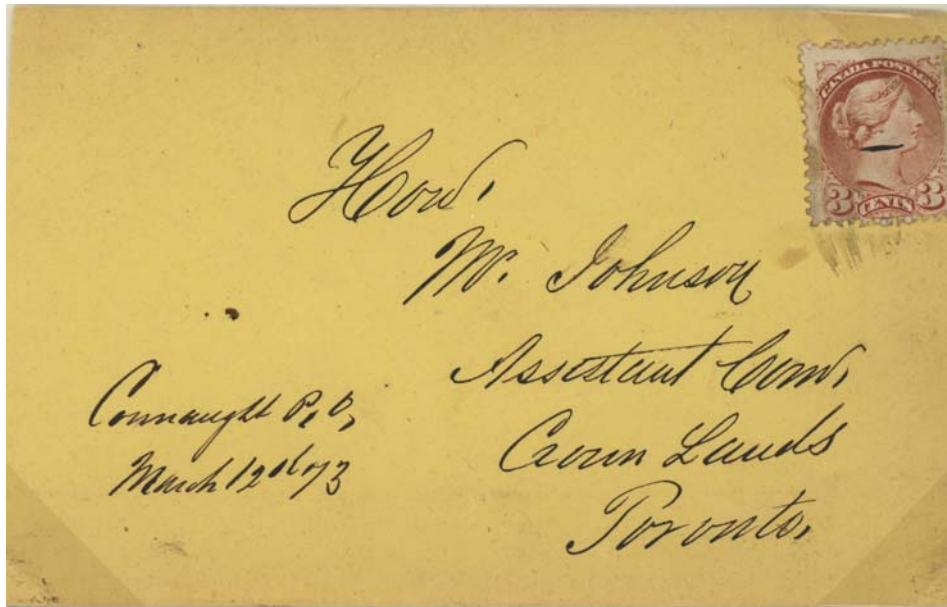 CANADA POSTAGE
3 CENTS 3
Hon.
Mr. Johnson
Assistant Com.
Crown Lands
Toronto.
Connaught P.O,
March 12th 73